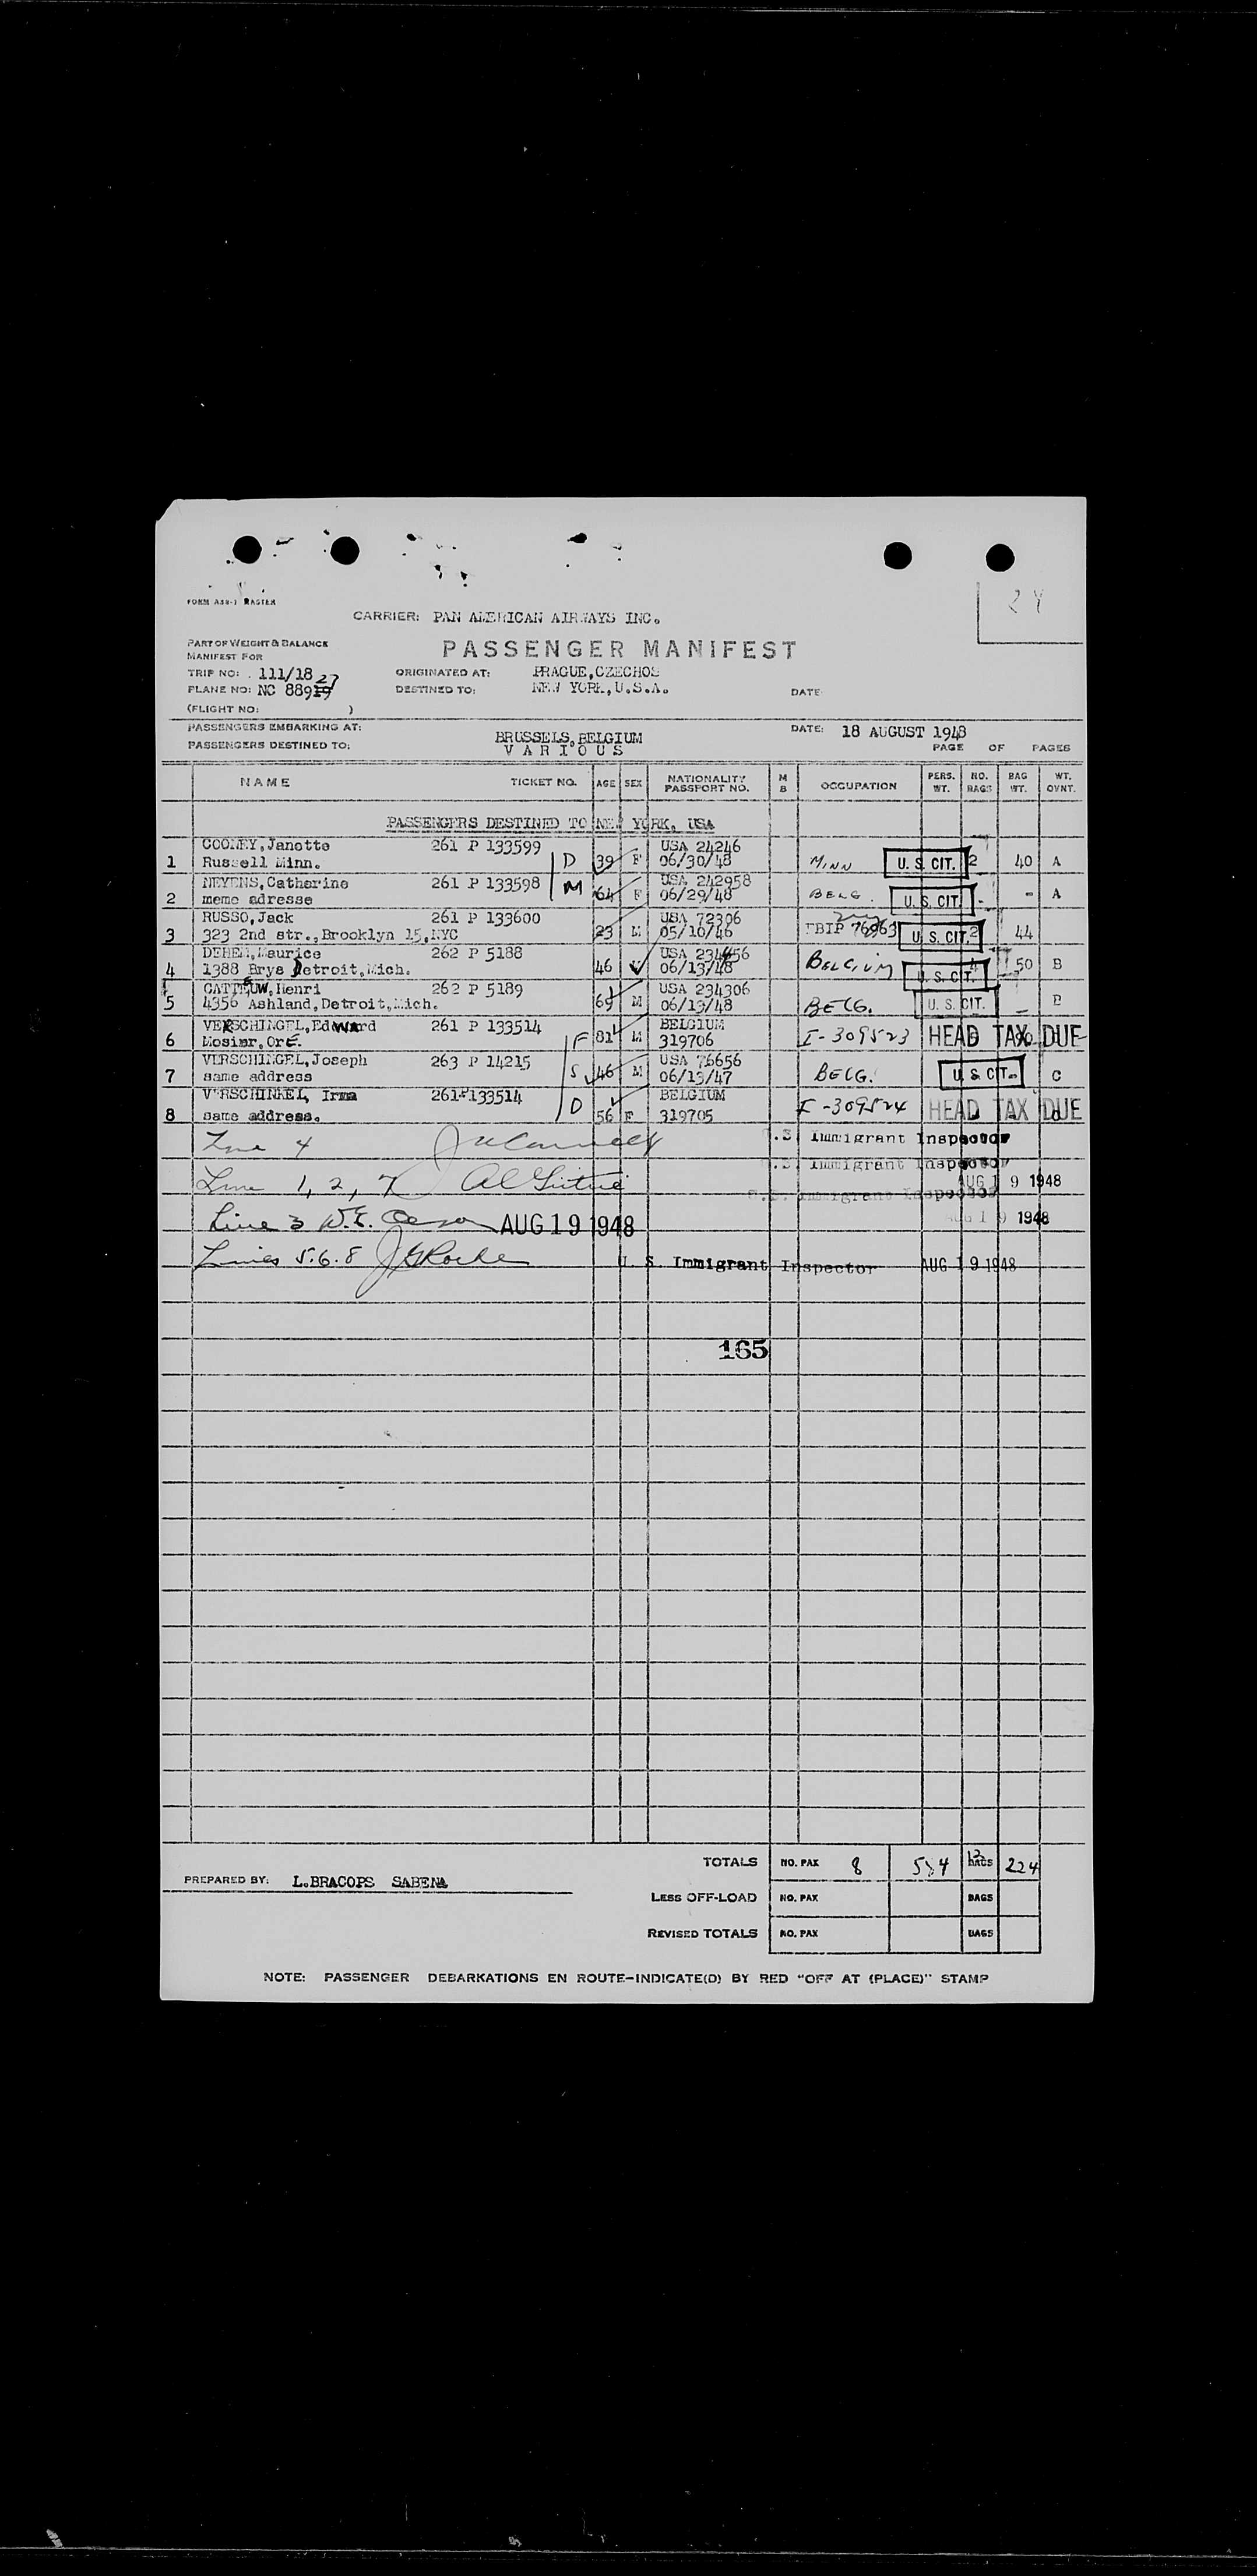 24
FORM A38-1 MASTER
CARRIER: PAN AMERICAN AIRWAYS INC.
PART OF WEIGHT & BALANCE
MANIFEST FOR
PASSENGER MANIFEST
TRIP NO: 111/18
ORIGINATED AT: PRAGUE, CZECHOS
PLANE NO: NC 889 27
DESTINED TO: NEW YORK, U.S.A.
DATE
(FLIGHT NO: )
PASSENGERS EMBARKING AT: BRUSSELS, BELGIUM
DATE: 18 AUGUST 1948
PASSENGERS DESTINED TO: VARIOUS
PAGE OF PAGES
NAME TICKET NO. AGE SEX NATIONALITY PASSPORT NO. M B OCCUPATION PERS. WT. NO. BAGS BAG WT. WT. OVNT.
PASSENGERS DESTINED TO NEW YORK, USA
COONEY, Janotte 261 P 133599 USA 24246
1 Russell Minn. D 39 F 06/30/48 MINN U. S. CIT. 2 40 A
NEYENS, Catherine 261 P 133598 M USA 242958
2 meme adresse 64 F 06/29/48 BELG. U. S. CIT. - - A
RUSSO, Jack 261 P 133600 USA 72306
3 323 2nd str., Brooklyn 15, NYC 23 M 05/10/46 U. S. CIT. 2 44
Maurice 262 P 5188 USA
4 1388 Brys Detroit, Mich. 46 06/13/48 BELGIUM U. S. CIT. 4 50 B
Henri 262 P 5189 USA 234306
5 4356 Ashland, Detroit, Mich. 69 M 06/19/48 BELG. U. S. CIT. - B
VERSCHINGEL, Edward 261 P 133514 F BELGIUM
6 Mosier, Ore. 81 M 319706 I-309523 HEAD TAX DUE
VERSCHINGEL, Joseph 263 P 14215 S USA 76656
7 same address 46 M 06/19/47 BELG. U. S. CIT. C
VERSCHINKEL, Irma 261 P 133514 D BELGIUM
8 same address. 56 F 319705 I-309524 HEAD TAX DUE
Line 4 U.S. Immigrant Inspector
U.S. Immigrant Inspector
Line 1, 2, 7 AUG 19 1948
U.S. Immigrant Inspector
Line 3 W.E. AUG 19 1948 AUG 19 1948
Lines 5. 6. 8 U. S. Immigrant Inspector AUG 19 1948
165
TOTALS NO. PAX 8 584 12 BAGS 224
PREPARED BY: L. BRACOPS SABENA
LESS OFF-LOAD NO. PAX BAGS
REVISED TOTALS NO. PAX BAGS
NOTE: PASSENGER DEBARKATIONS EN ROUTE-INDICATE(D) BY RED "OFF AT (PLACE)" STAMP